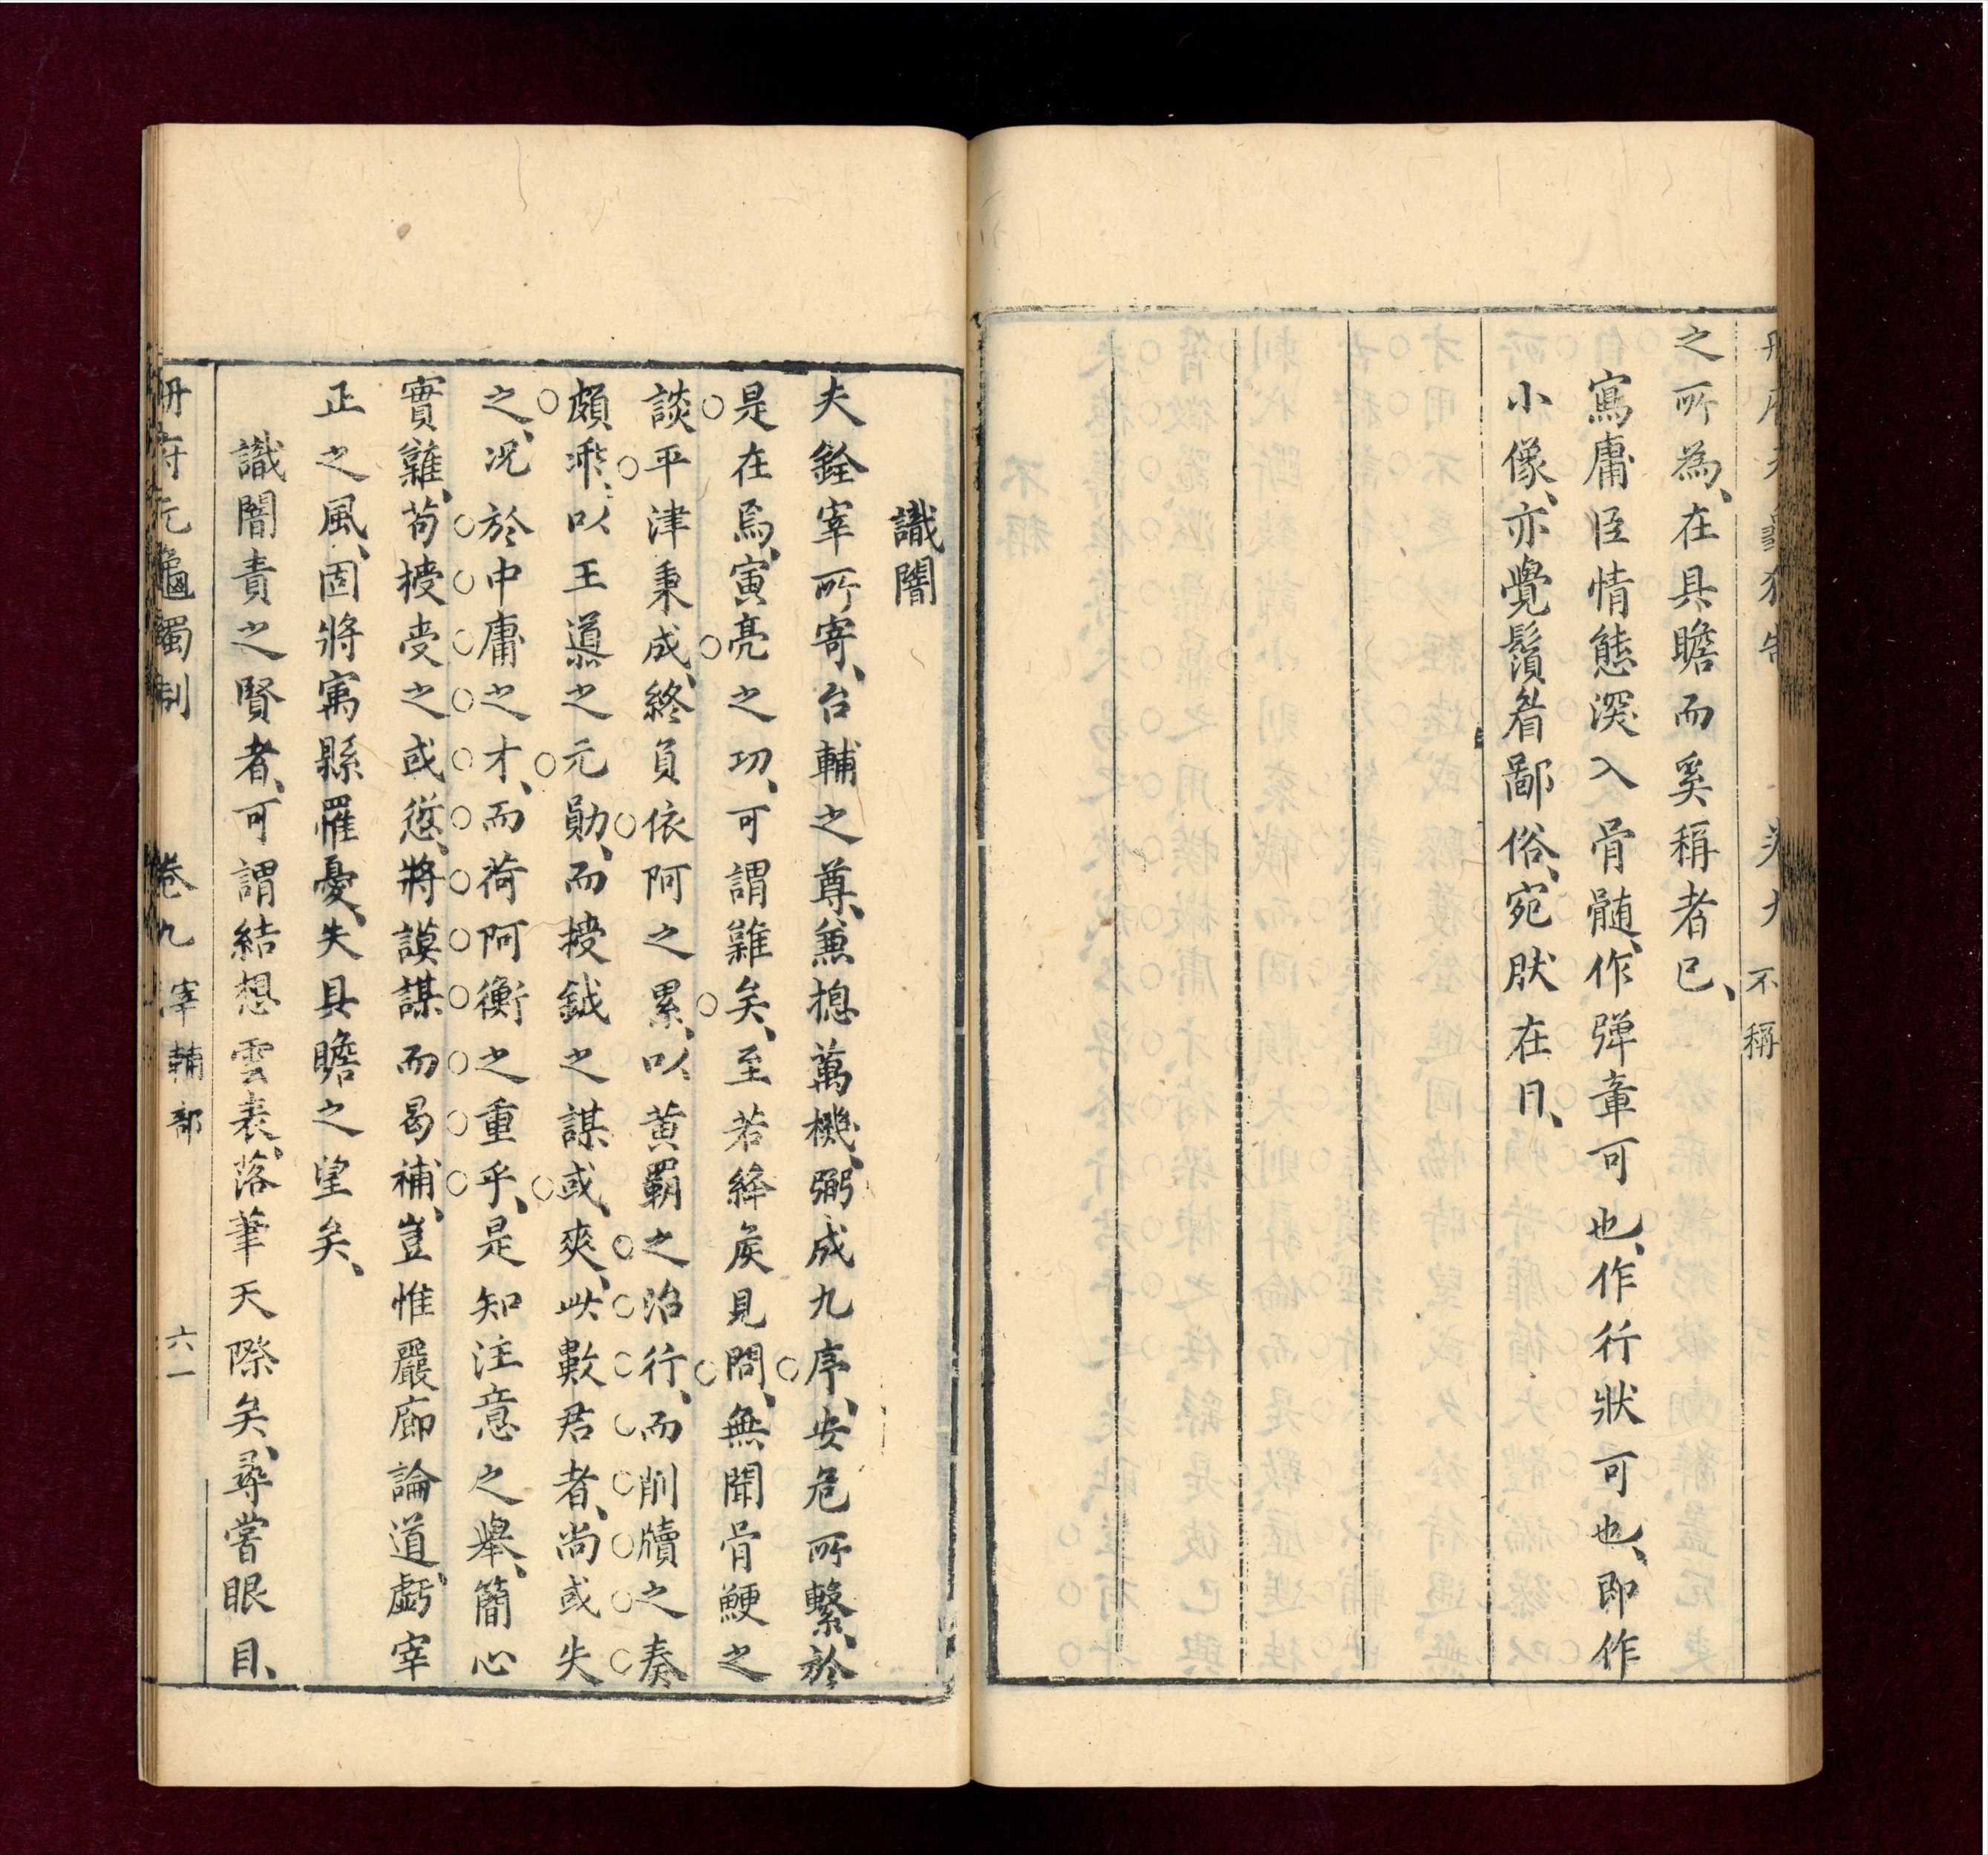 之所為、在具瞻而奚稱者已、
寫庸臣情態深入骨髓、作弹章可也、作行狀可也、即作
小像、亦覺鬚眉鄙俗、宛肰在目、
不稱
識闇
夫銓宰所寄、台輔之尊、兼揔萬機、弼成九序、安危所繫、於
是在焉、寅亮之功、可謂難矣、至若絳矦見問、無聞骨鯁之
談、平津秉成、終負依阿之累、以黄霸之治行、而削牘之奏
頗乖、以王導之元勛、而授鉞之謀或爽、此數君者、尚或失
之、况於中庸之才、而荷阿衡之重乎、是知注意之舉、簡心
實難、苟授受之或愆、將謨謀而曷補、豈惟嚴廊論道、虧宰
正之風、固將寓縣罹憂、失具瞻之望矣、
識闇責之賢者、可謂結想雲表、落筆天際矣、尋嘗眼目、
册府元龜獨制 卷九 宰輔部 六一